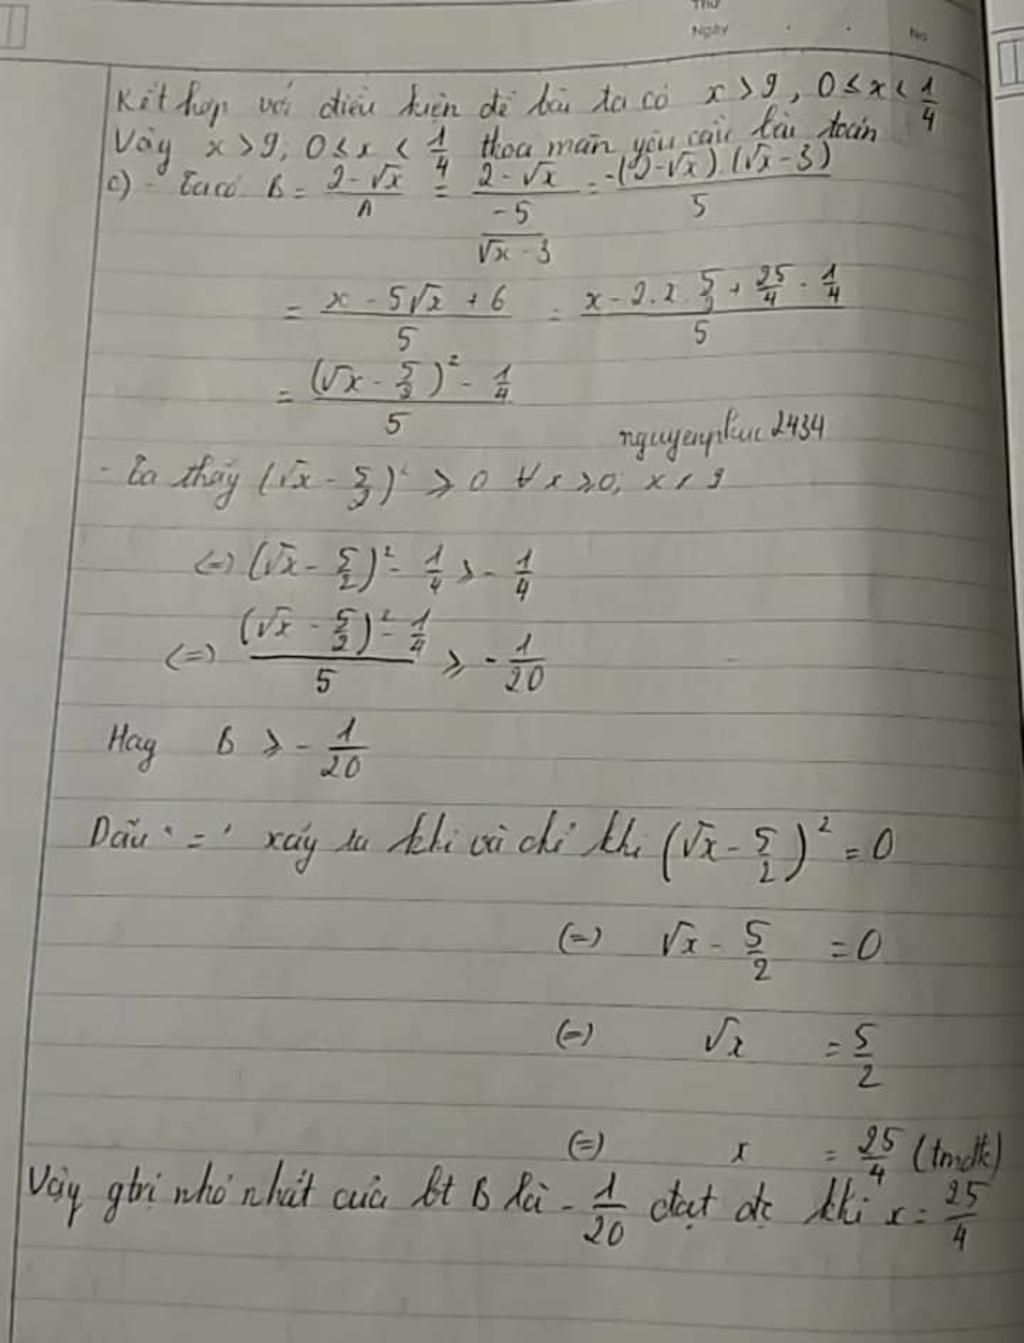 Thứ
Ngày No
Kết hợp với điều kiện đề bài ta có x > 9, 0 ≤ x < 1/4
Vậy x > 9; 0 ≤ x < 1/4 thoả mãn yêu cầu bài toán
c) - Ta có B = (2 - √x)/A = (2 - √x)/(-5/(√x - 3)) = -(2 - √x).(√x - 3)/5
= (x - 5√x + 6)/5 = (x - 2.2.5/2 + 25/4 - 1/4)/5
= ((√x - 5/2)² - 1/4)/5
nguyenphuc2434
- Ta thấy (√x - 5/2)² ≥ 0 ∀ x ≥ 0; x < 9
(=) (√x - 5/2)² - 1/4 ≥ - 1/4
(=) ((√x - 5/2)² - 1/4)/5 ≥ - 1/20
Hay B ≥ - 1/20
Dấu '=' xảy ra khi và chỉ khi (√x - 5/2)² = 0
(=) √x - 5/2 = 0
(=) √x = 5/2
(=) x = 25/4 (tmđk)
Vậy gtrị nhỏ nhất của bt B là - 1/20 đạt đc khi x = 25/4